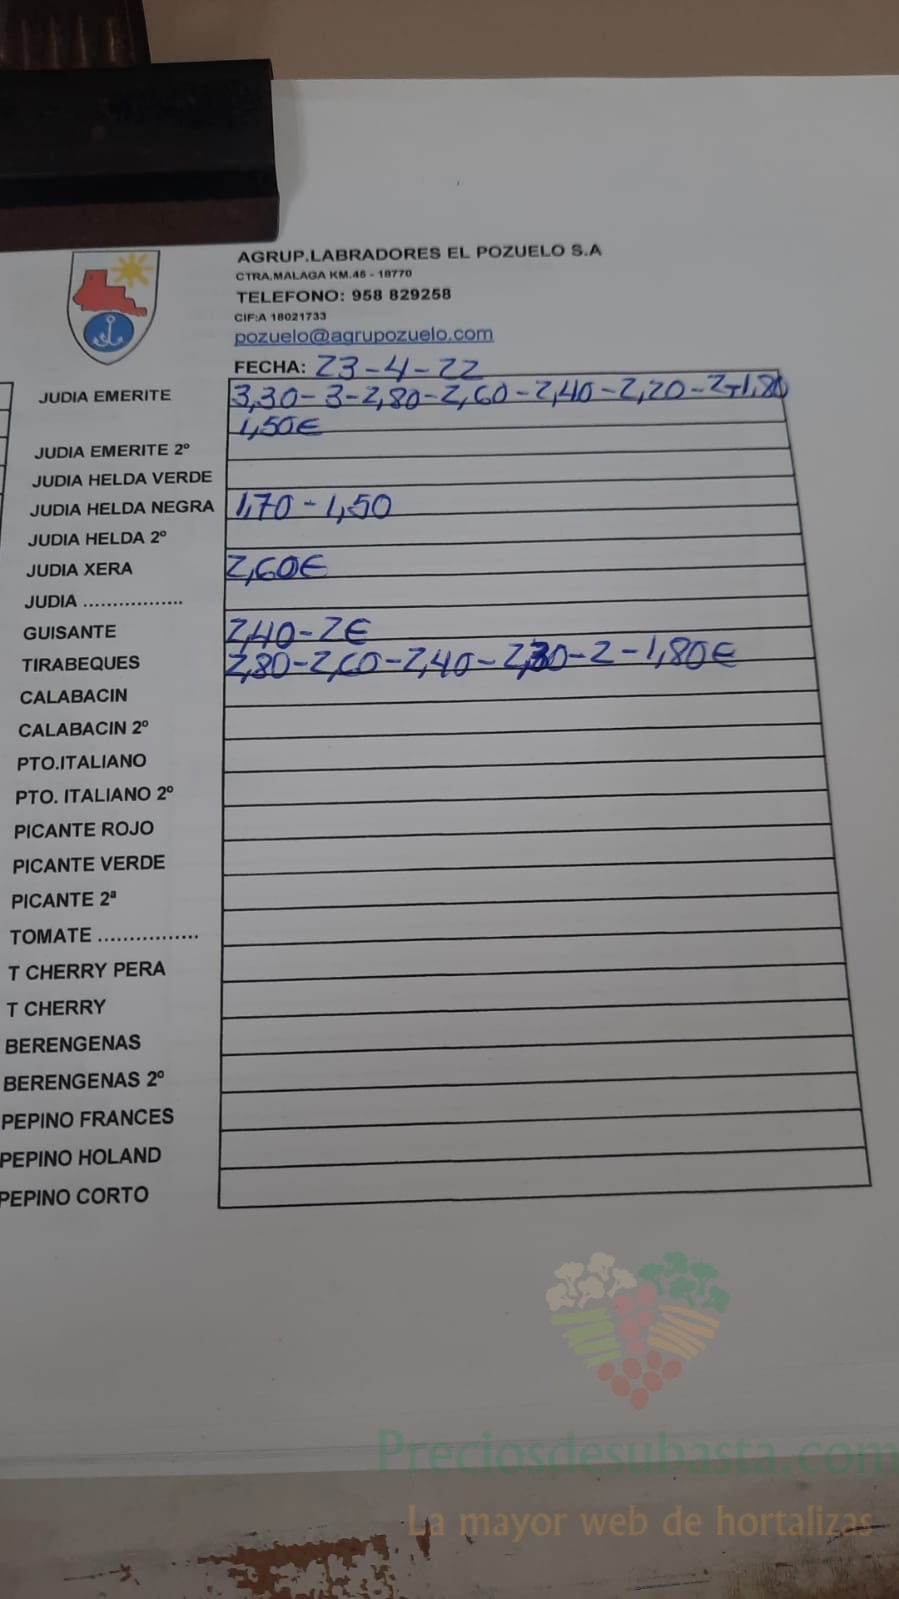 AGRUP.LABRADORES EL POZUELO S.A
CTRA.MALAGA KM.46 - 18770
TELEFONO: 958 829258
CIF:A 18021733
pozuelo@agrupozuelo.com
FECHA: 23-4-22
JUDIA EMERITE 3,30-3-2,80-2,60-2,40-2,20-2-1,80
1,50€
JUDIA EMERITE 2º
JUDIA HELDA VERDE
JUDIA HELDA NEGRA 1,70-1,50
JUDIA HELDA 2º
JUDIA XERA 2,60€
JUDIA .................
GUISANTE 2,40-2€
TIRABEQUES 2,80-2,60-2,40-2,30-2-1,80€
CALABACIN
CALABACIN 2º
PTO.ITALIANO
PTO. ITALIANO 2º
PICANTE ROJO
PICANTE VERDE
PICANTE 2ª
TOMATE ................
T CHERRY PERA
T CHERRY
BERENGENAS
BERENGENAS 2º
PEPINO FRANCES
PEPINO HOLAND
PEPINO CORTO
Preciosdesubasta.com
La mayor web de hortalizas